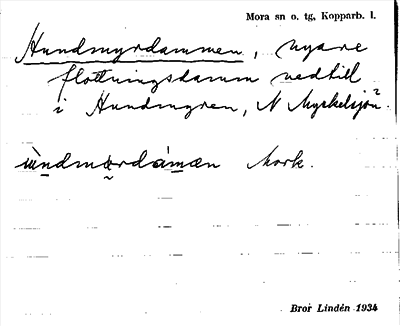 Mora sn o. tg, Kopparb. l.
Hundmyrdammen, nyare
flottningsdamm nedtill
i Hundmyren, N Myckelsjön.
ùndmǝrdámæn Mork.
Bror Lindén 1934